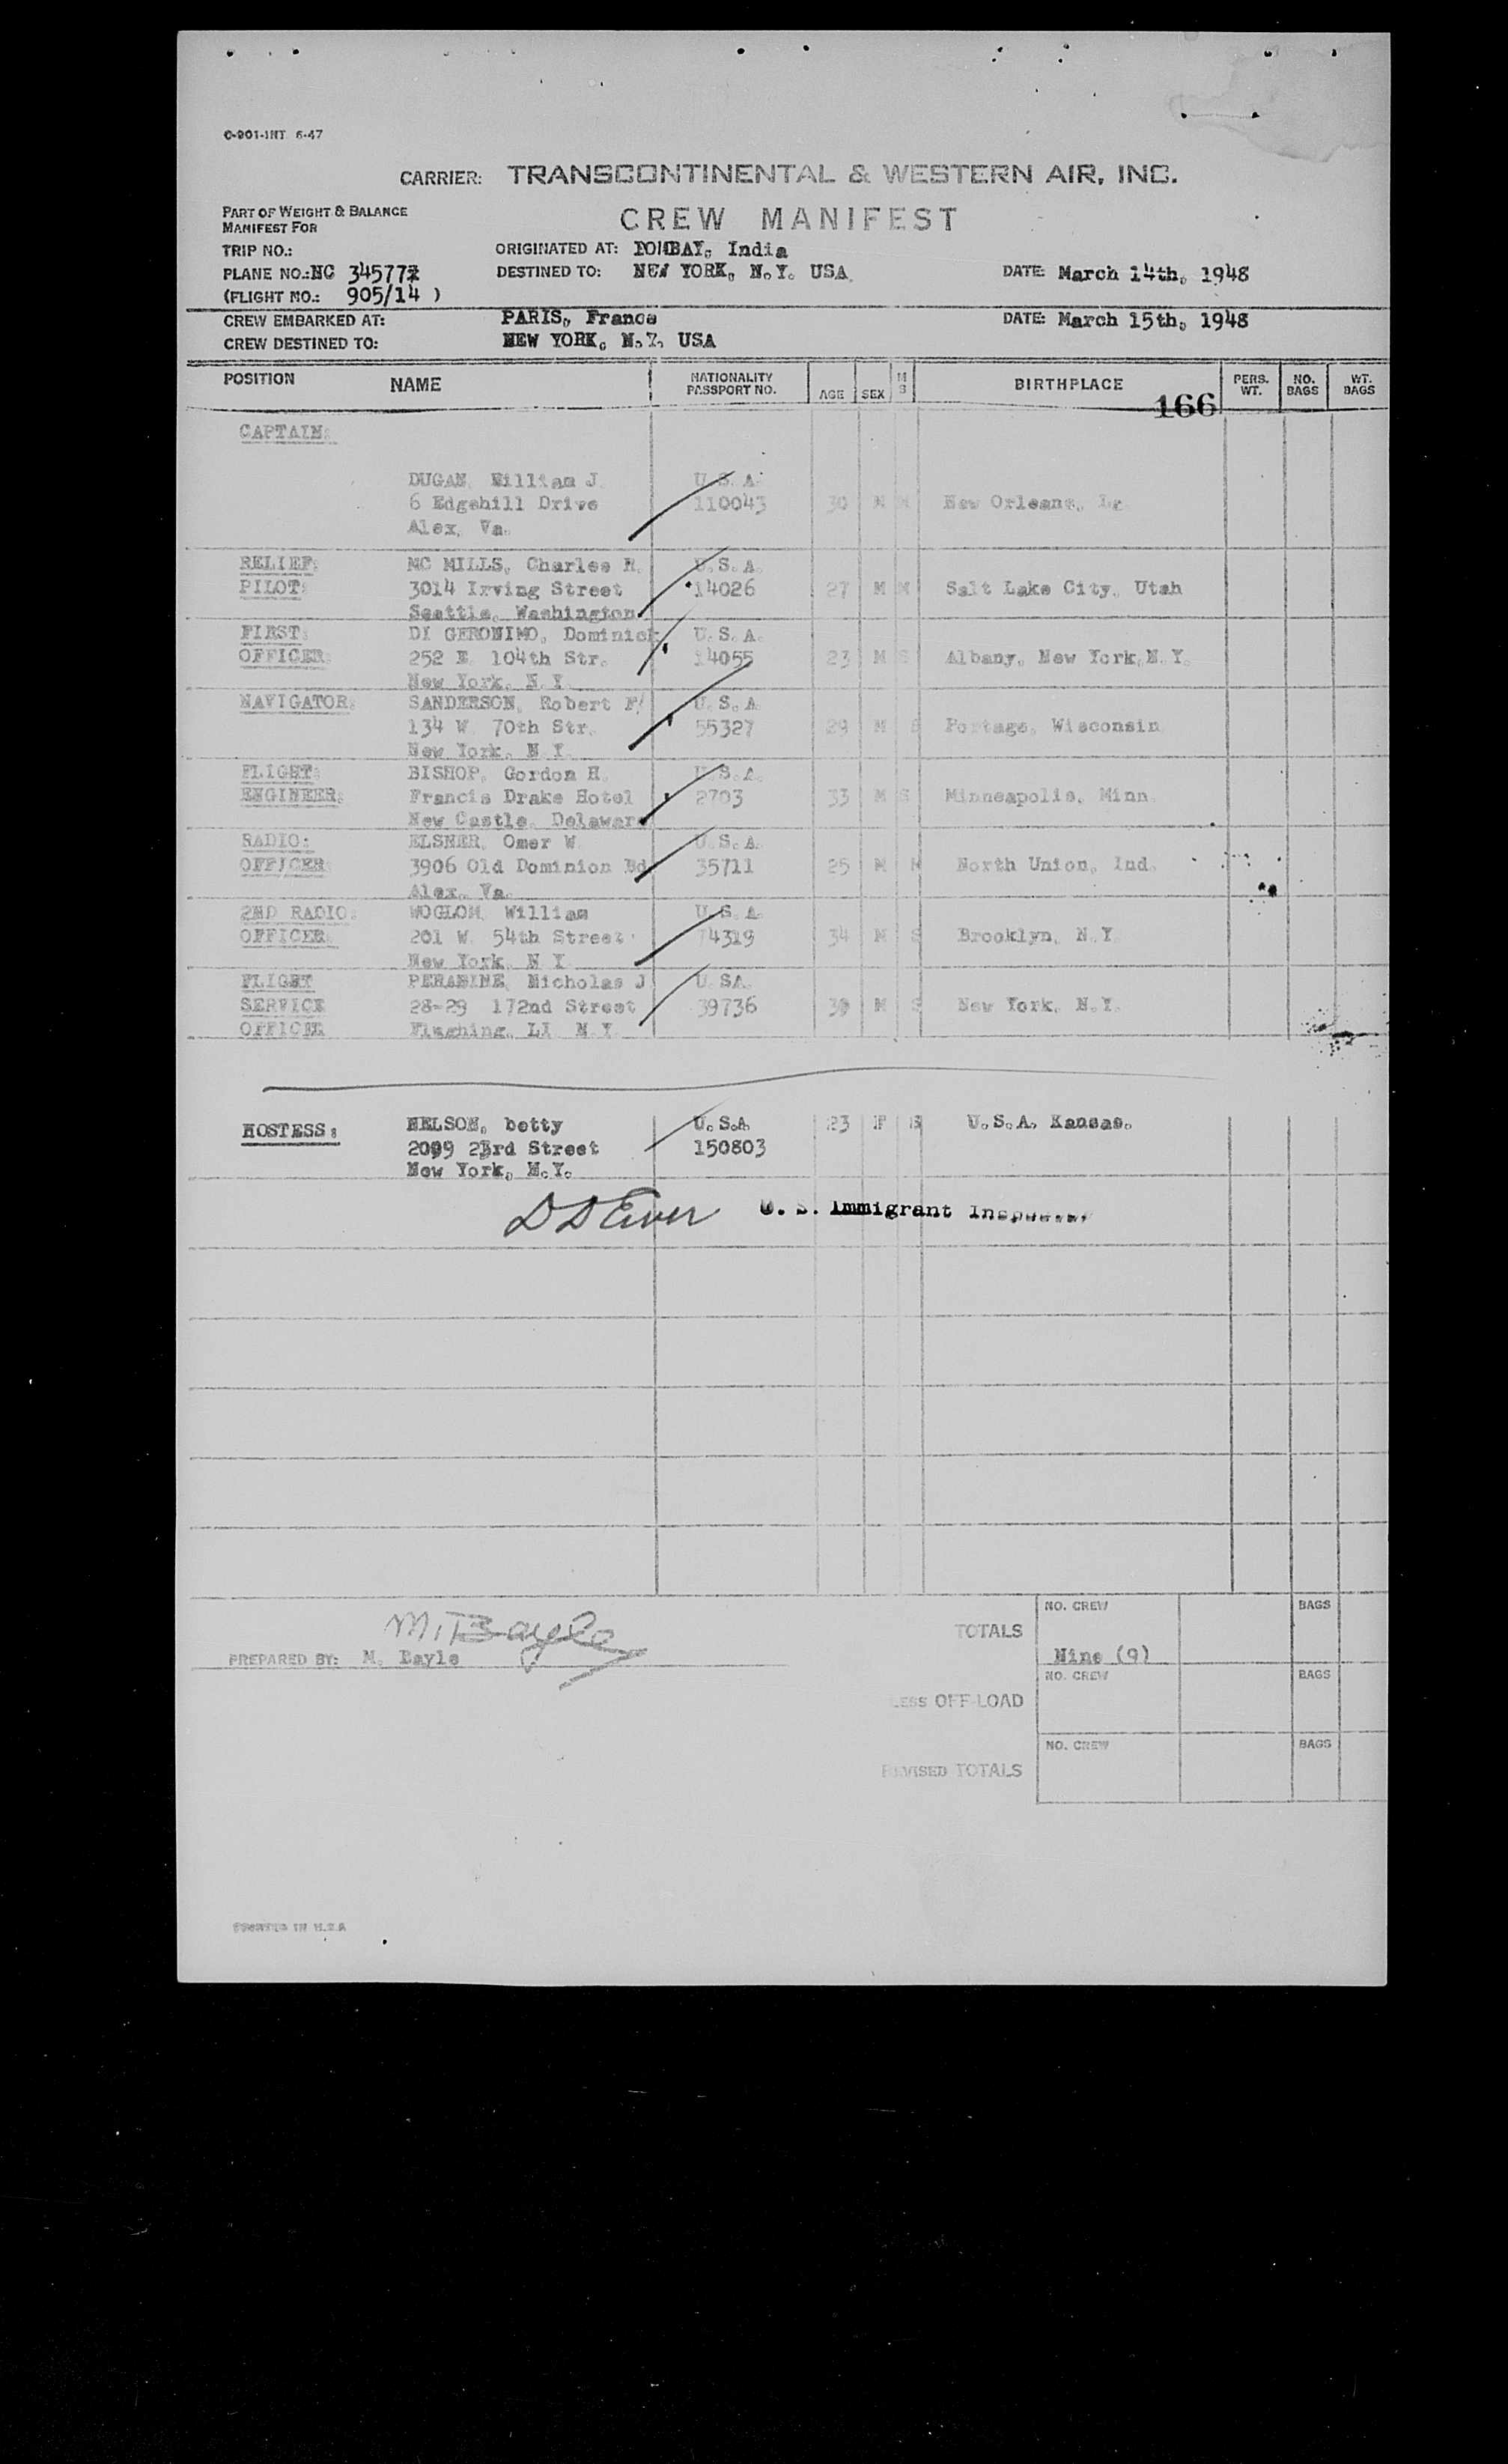 C-901-INT 6-47
CARRIER: TRANSCONTINENTAL & WESTERN AIR, INC.
PART OF WEIGHT & BALANCE
MANIFEST FOR
CREW MANIFEST
TRIP NO.: ORIGINATED AT: BOMBAY, India
PLANE NO.: NC 34577 DESTINED TO: NEW YORK, N.Y. USA. DATE: March 14th, 1948
(FLIGHT NO.: 905/14 )
CREW EMBARKED AT: PARIS, France DATE: March 15th, 1948
CREW DESTINED TO: NEW YORK, N.Y. USA
POSITION NAME NATIONALITY PASSPORT NO. AGE SEX M S BIRTHPLACE PERS. WT. NO. BAGS WT. BAGS
166
CAPTAIN:
DUGAN, William J. U.S.A.
6 Edgehill Drive 110043 30 M M New Orleans, La.
Alex, Va.
RELIEF: MC MILLS, Charles R. U.S.A.
PILOT: 3014 Irving Street 14026 27 M M Salt Lake City, Utah
Seattle, Washington
FIRST: DI GERONIMO, Dominick U.S.A.
OFFICER: 252 E. 104th Str. 14055 23 M S Albany, New York, N.Y.
New York, N.Y.
NAVIGATOR: SANDERSON, Robert F/ U.S.A.
134 W. 70th Str. 55327 29 M S Portage, Wisconsin
New York, N.Y.
FLIGHT: BISHOP, Gordon H. U.S.A.
ENGINEER: Francis Drake Hotel 2703 33 M S Minneapolis, Minn.
New Castle, Delaware
RADIO: ELSNER, Omer W. U.S.A.
OFFICER: 3906 Old Dominion Bd. 35711 25 M M North Union, Ind.
Alex, Va.
2ND RADIO: WOGLOM, William U.S.A.
OFFICER: 201 W. 54th Street 74319 34 M S Brooklyn, N.Y.
New York, N.Y.
FLIGHT Nicholas J. U.SA.
SERVICE 28-29 172nd Street 39736 M S New York, N.Y.
OFFICER Flushing, LI N.Y.
HOSTESS: NELSON, betty U.S.A. 23 F S U.S.A. Kansas.
23rd Street 150803
New York, N.Y.
U. S. Immigrant Inspector
NO. CREW BAGS
TOTALS
Nine (9)
M. Bayle
PREPARED BY: M. Bayle
NO. CREW BAGS
LESS OFF-LOAD
NO. CREW BAGS
REVISED TOTALS
PRINTED IN U.S.A